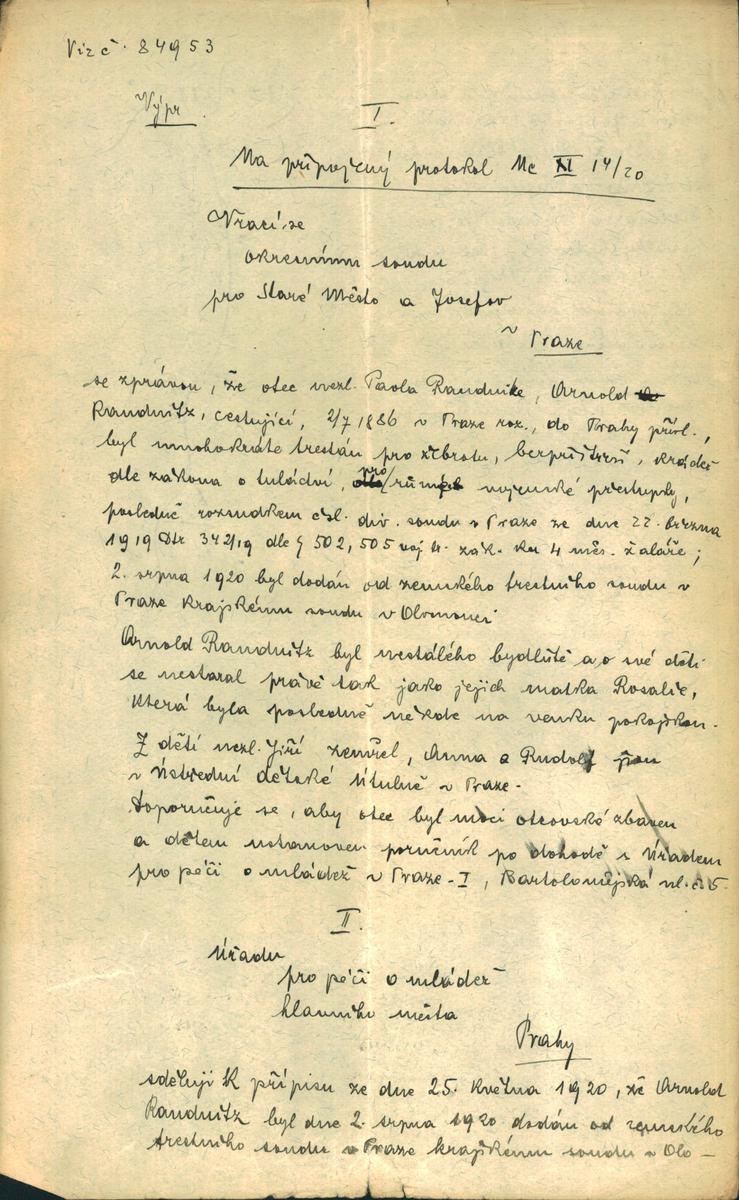 Viz č. 84953
Výpr.
I.
Na připojený protokol Nc XI 14/20
Vrací se
okresnímu soudu
pro Staré Město a Josefov
v Praze
se zprávou, že otec nezl. Pavla Raudnitze, Arnold
Raudnitz, cestující, 2/7 1886 v Praze roz., do Prahy přísl.,
byl mnohokráte trestán pro žebrotu, bezpřístřeší, krádež
dle zákona o tuláctví, pro různé vojenské přestupky,
posledně rozsudkem čsl. div. soudu v Praze ze dne 22. března
1919 Dtr 342/19 dle § 502, 505 voj. tr. zák. ku 4 měs. žaláře;
2. srpna 1920 byl dodán od zemského trestního soudu v
Praze krajskému soudu v Olomouci
Arnold Raudnitz byl nestálého bydliště a o své děti
se nestaral právě tak jako jejich matka Rosalie,
která byla posledně někde na venku pokojskou.
Z dětí nezl. Jiří zemřel, Anna a Rudolf jsou
v Ústřední dětské útulně v Praze.
Doporučuje se, aby otec byl moci otcovské zbaven
a dětem ustanoven poručník po dohodě s Úřadem
pro péči o mládež v Praze-I, Bartolomějská ul. č. 5.
II.
Úřadu
pro péči o mládež
hlavního města
Prahy
sděluji k přípisu ze dne 25. května 1920, že Arnold
Raudnitz byl dne 2. srpna 1920 dodán od zemského
trestního soudu v Praze krajskému soudu v Olo-